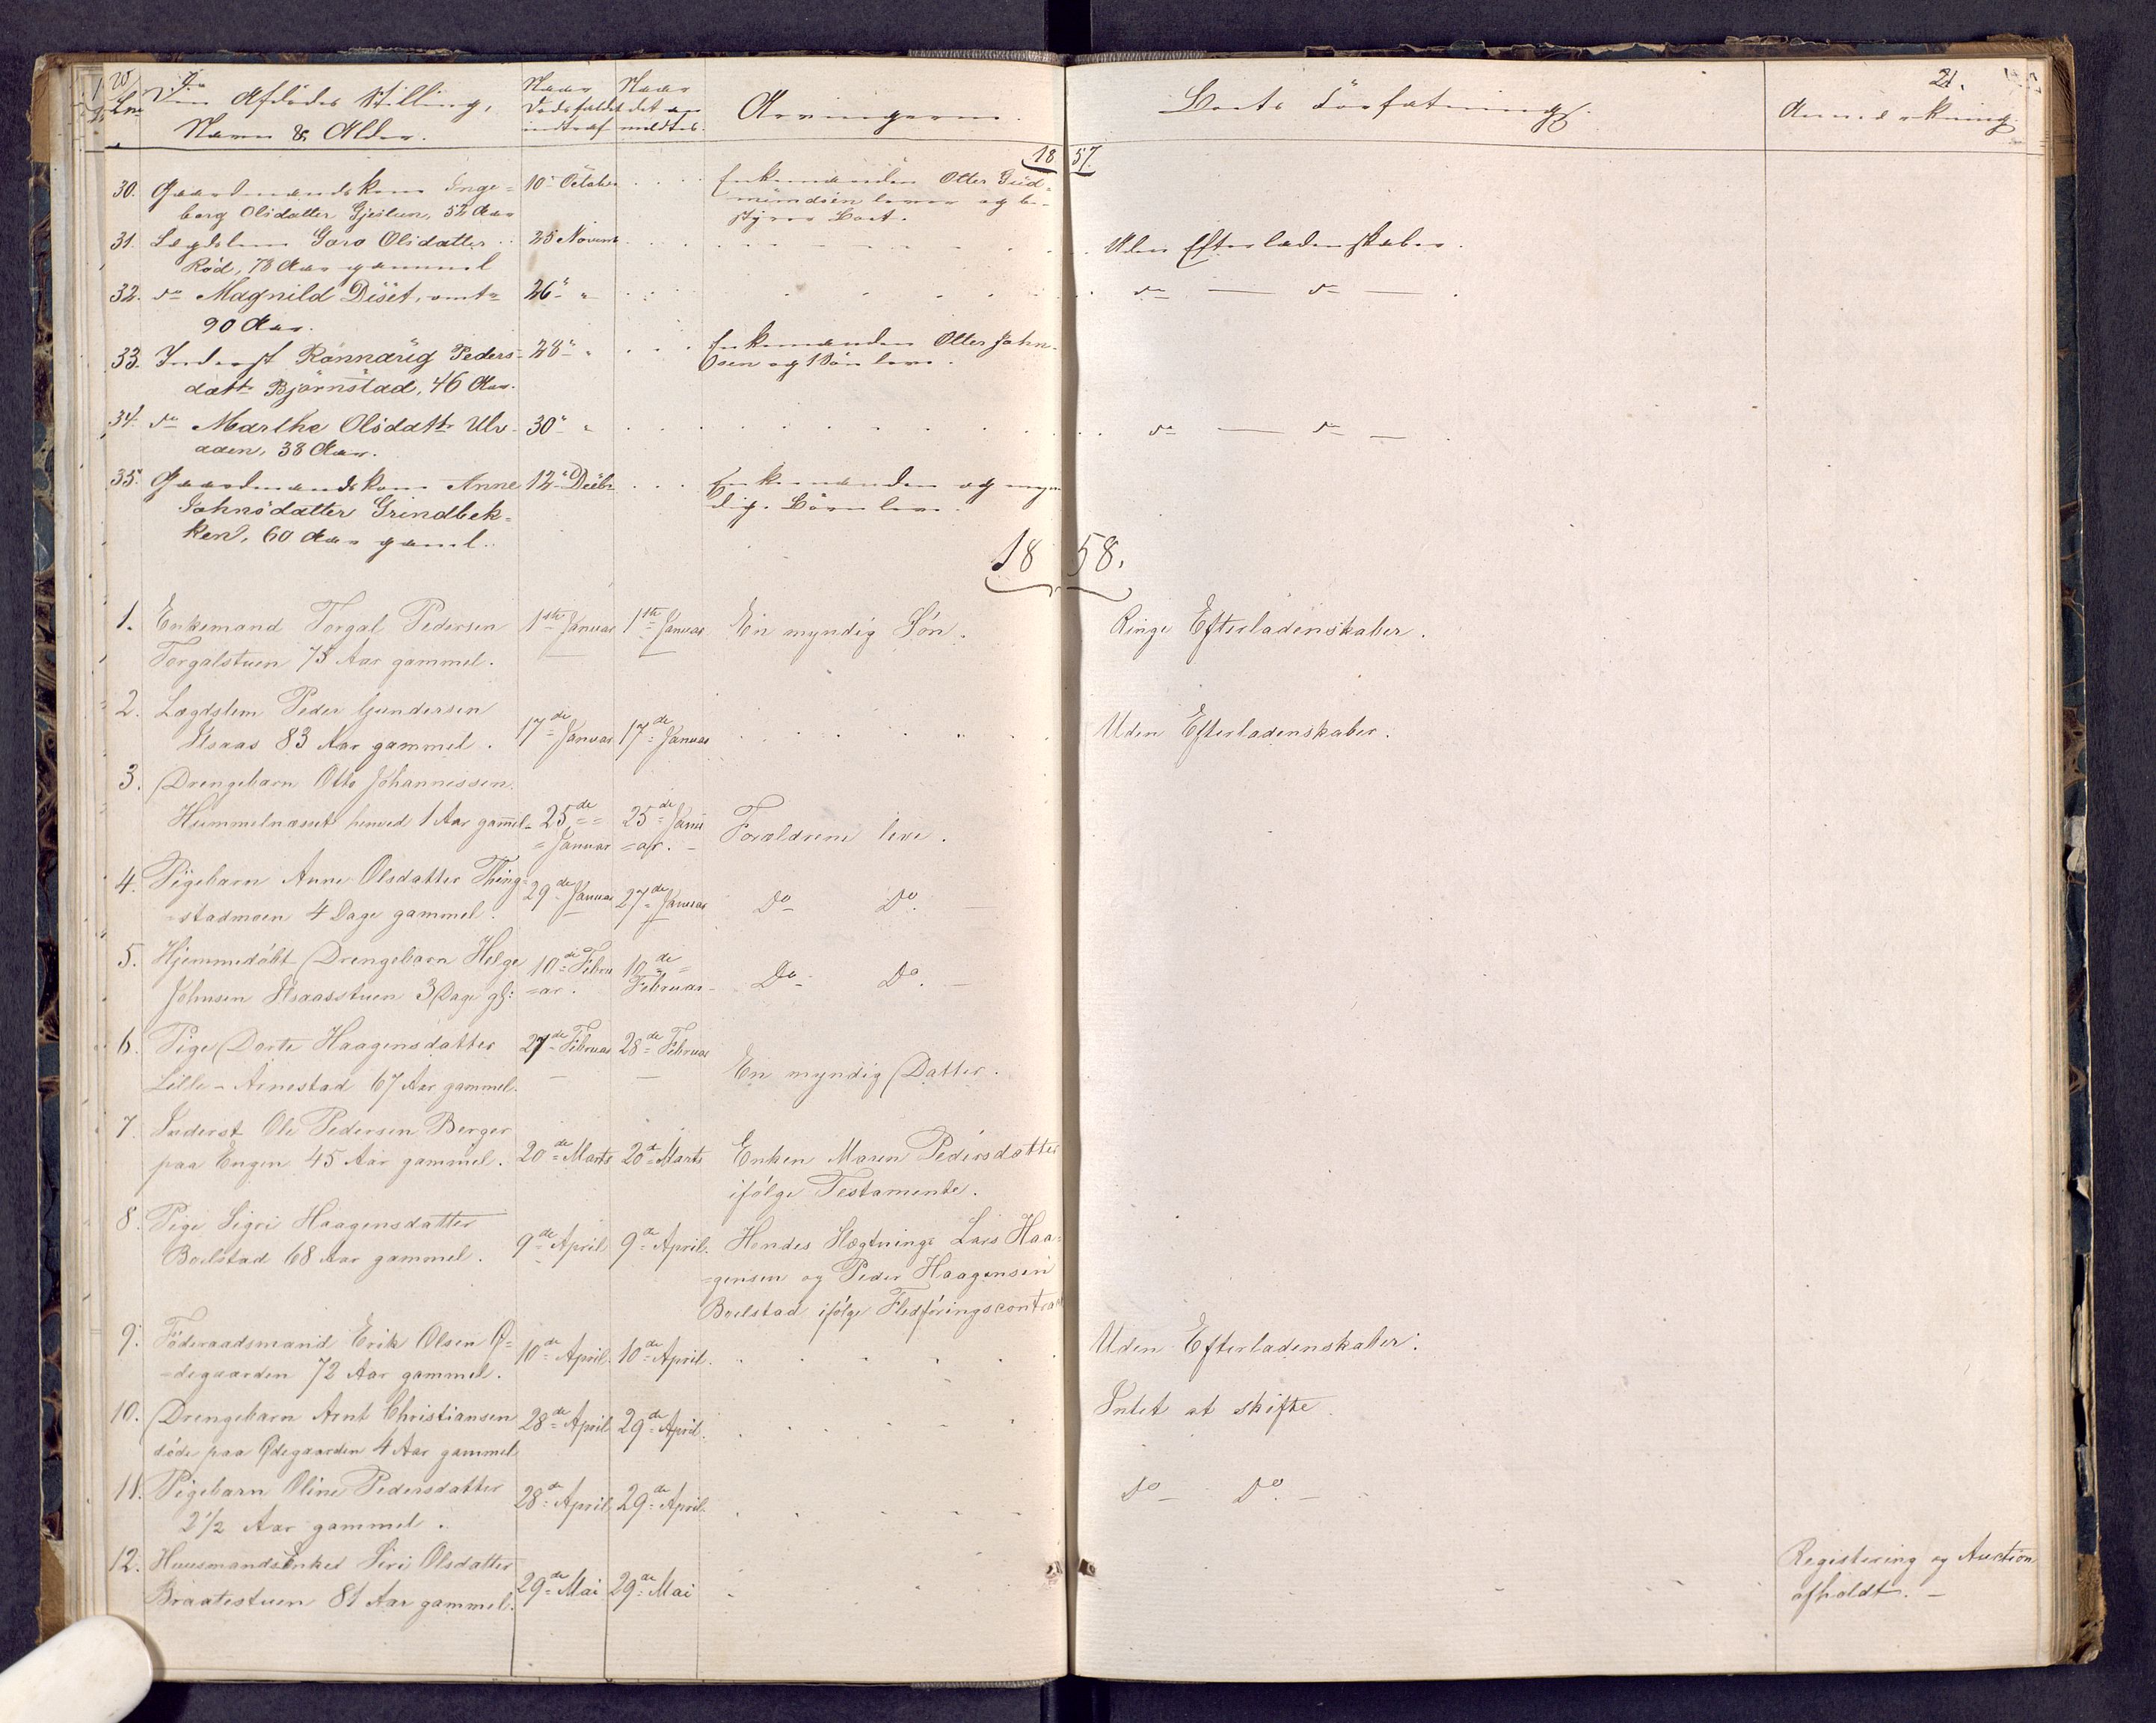 20
Lnr. Den Afdødes Stilling, Navn & Alder.
Naar Dødsfaldet indtraf
Naar det anmeldtes.
Arvingerne.
Boets Forfatning.
21.
Anmerkning.
1857.
30. Gaardmandskone Inge-
borg Olsdatter Gjeilun, 52 Aar
10de October
Enkemanden Otter Gud-
mundsen lever og be-
styrer Boet.
31. Lægdslem Goro Olsdatter
Röd, 78 Aar gammel
25 Novemb
Uden Efterladenskaber.
32. do Magnild Diset, omtr
90 Aar.
26 "
do — do — .
33. Inderst Rönnaug Peders-
datt Björnstad, 46 Aar.
28 "
Enkemanden Otter John-
sen og 1 Sön leve.
34. do Marthe Olsdattr Ulv-
aaen, 38 Aar.
30 "
do — do — .
35. Gaardmandskone Anne
Johnsdatter Grindbek-
ken, 60 Aar gaml.
12 Decbr
Enkemanden og myn
dige Börn leve.
1858.
1. Enkemand Torgal Pedersen
Torgalstuen 75 Aar gammel.
1ste Januar
1ste Januar
En myndig Sön.
Ringe Efterladenskaber.
2. Lægdslem Peder Gundersen
Ilsaas 83 Aar gammel.
17de Januar
17de Januar
Uden Efterladenskaber.
3. Drengebarn Otto Johannessen
Hummelnæset henved 1 Aar gammel
25de
Januar
25de Janu
=ar.
Forældrene leve.
4. Pigebarn Anne Olsdatter Thing=
stadmoen 4 Dage gammel.
29de Januar
27de Januar
Do Do
5. Hjemmedöbt Drengebarn Helge
Johnsen Ilsaasstuen 3 Dage gl:
10de Febru
=ar.
10de
Februar
Do Do.
6. Pige Dorte Haagensdatter
Lille-Arnestad 67 Aar gammel.
27de Februar
28de Februar
En myndig Datter.
7. Inderst Ole Pedersen Berger
paa Engen 45 Aar gammel.
20de Marts
20de Marts
Enken Maren Pedersdatter
ifölge Testamente.
8. Pige Sigri Haagensdatter
Boelstad 68 Aar gammel.
9de April
9de April.
Hendes Slægtninge Lars Haa=
=gensen og Peder Haagensen
Boelstad ifölge Fledföringscontra
9. Föderaadsmand Erik Olsen Ø=
=degaarden 72 Aar gammel.
10de April.
10de April.
Uden Efterladenskaber.
10. Drengebarn Arnt Christiansen
döde paa Ødegaarden 4 Aar gammel
28de April
29de April.
Intet at skifte
11. Pigebarn Oline Pedersdatter
2 1/2 Aar gammel.
28de April
29de April.
Do Do.
12. Huusmandsenken Siri Olsdatter
Braatestuen 81 Aar gammel.
29de Mai
29de Mai
Registering og Auction
afholdt. —